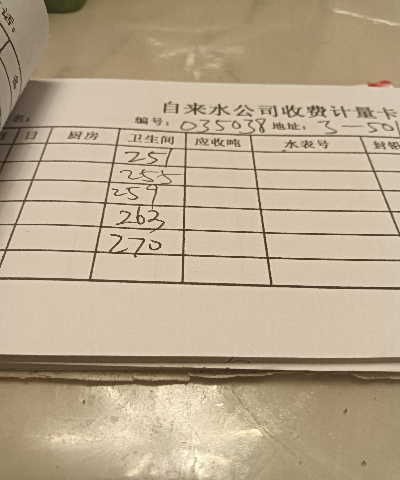 自来水公司收费计量卡
名: 编号: 035038 地址: 3-501
日 厨房 卫生间 应收吨 水表号 封铅
251
255
259
263
270